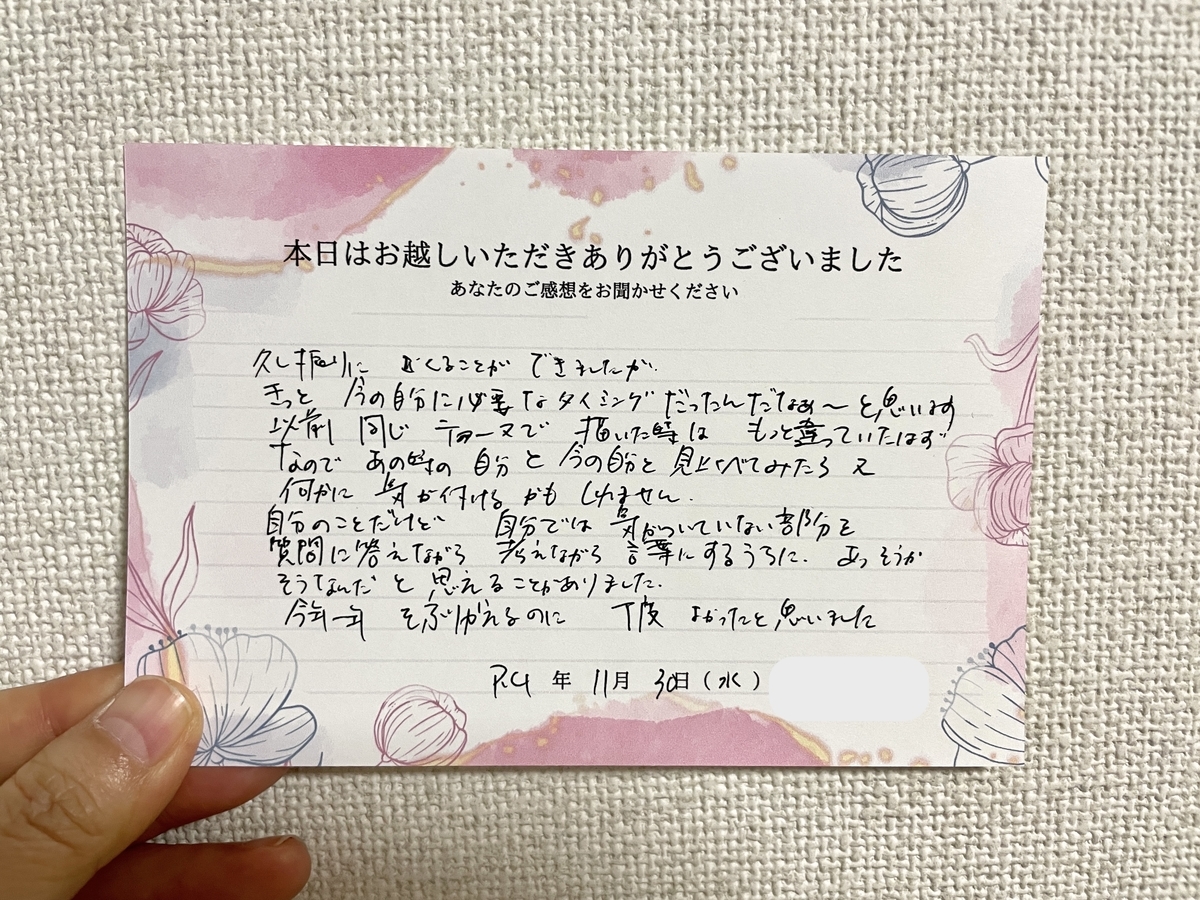 本日はお越しいただきありがとうございました
あなたのご感想をお聞かせください
久し振りに くることが できましたが
きっと 今の自分に必要なタイミングだったんだなぁ〜と思います
以前 同じ テーマで 描いた時は もっと違っていたはず
なので あの時の 自分と今の自分と 見比べてみたら 又
何かに 気が付ける かも しれません.
自分のことだけど 自分では 気がついていない部分を
質問に答えながら 考えながら 言葉にするうちに. あっそうか
そうなんだ と 思えることがありました.
今年一年 そふりかえるのに 丁度 よかったと思いました
R.4 年 11月 30日(水)